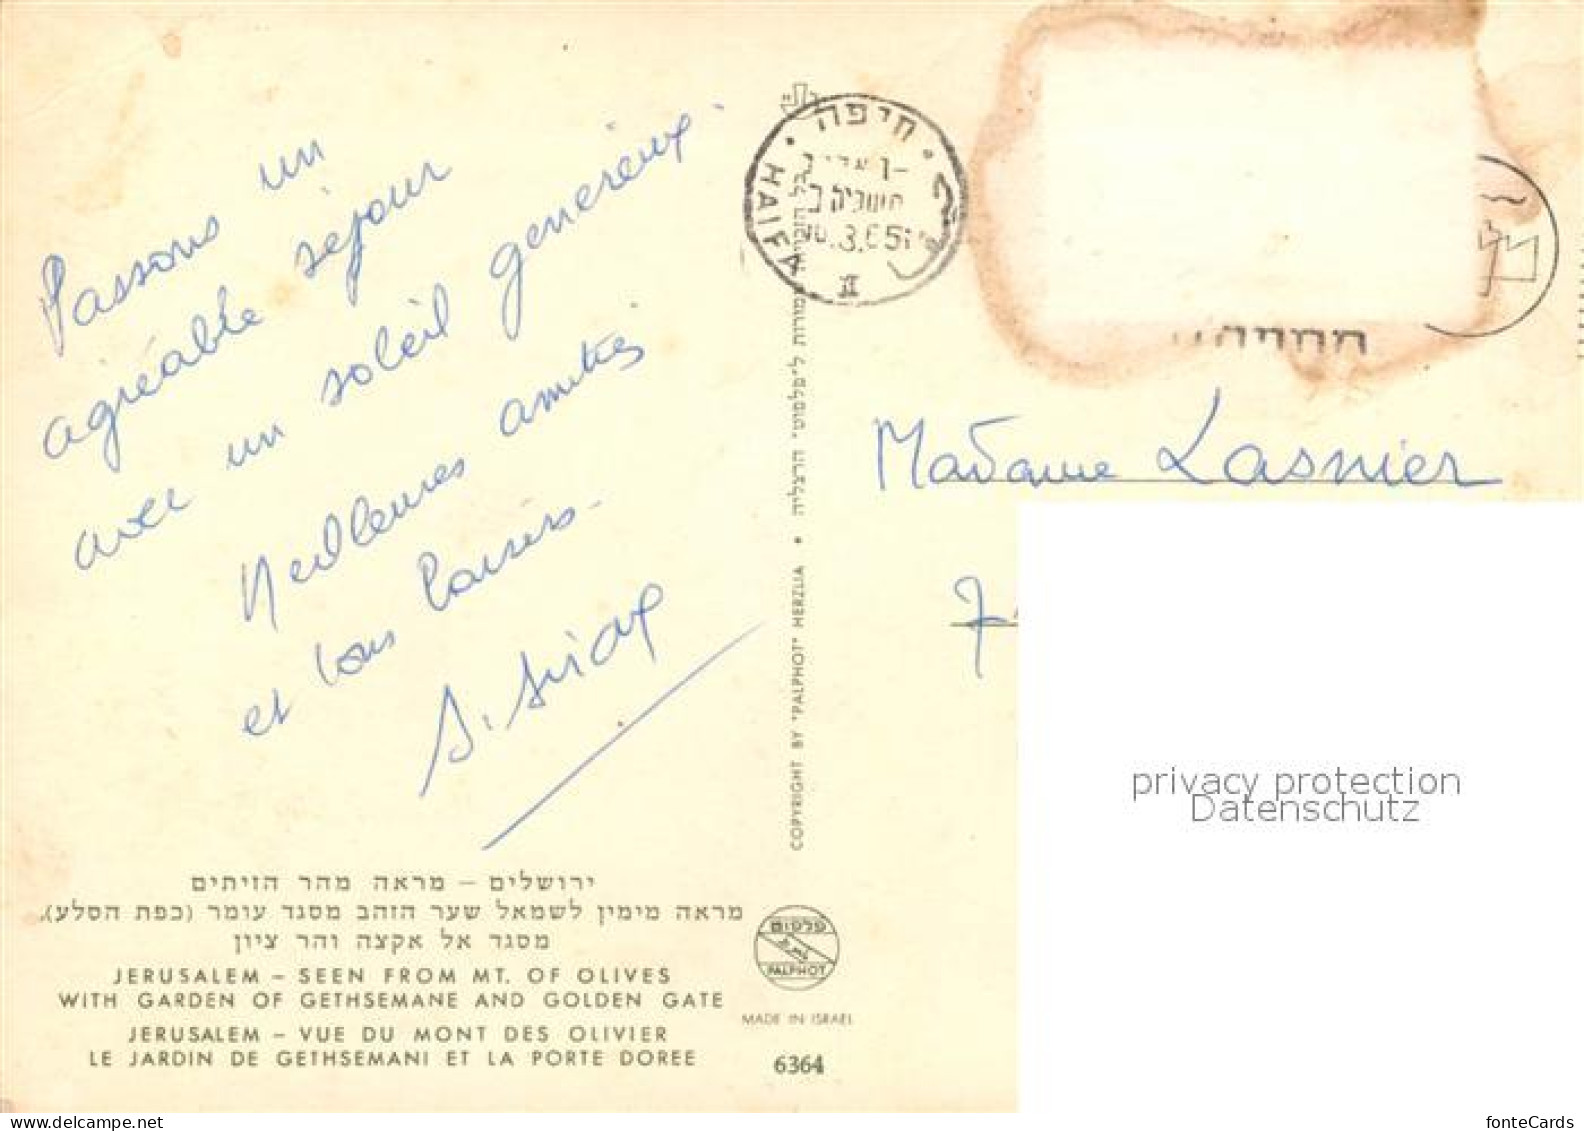 Passons un
agréable séjour
avec un soleil généreux.
Meilleures amitiés
et bons baisers.
ירושלים – מראה מהר הזיתים
מראה מימין לשמאל שער הזהב מסגד עומר (כפת הסלע),
מסגד אל אקצה והר ציון
JERUSALEM – SEEN FROM MT. OF OLIVES
WITH GARDEN OF GETHSEMANE AND GOLDEN GATE
JERUSALEM – VUE DU MONT DES OLIVIER
LE JARDIN DE GETHSEMANI ET LA PORTE DOREE
COPYRIGHT BY "PALPHOT" HERZLIA • שמורות ל"פלפוט" הרצליה
פלפוט
PALPHOT
MADE IN ISRAEL
6364
חיפה
HAIFA
II
Madame Lasnier
privacy protection
Datenschutz
fonteCards